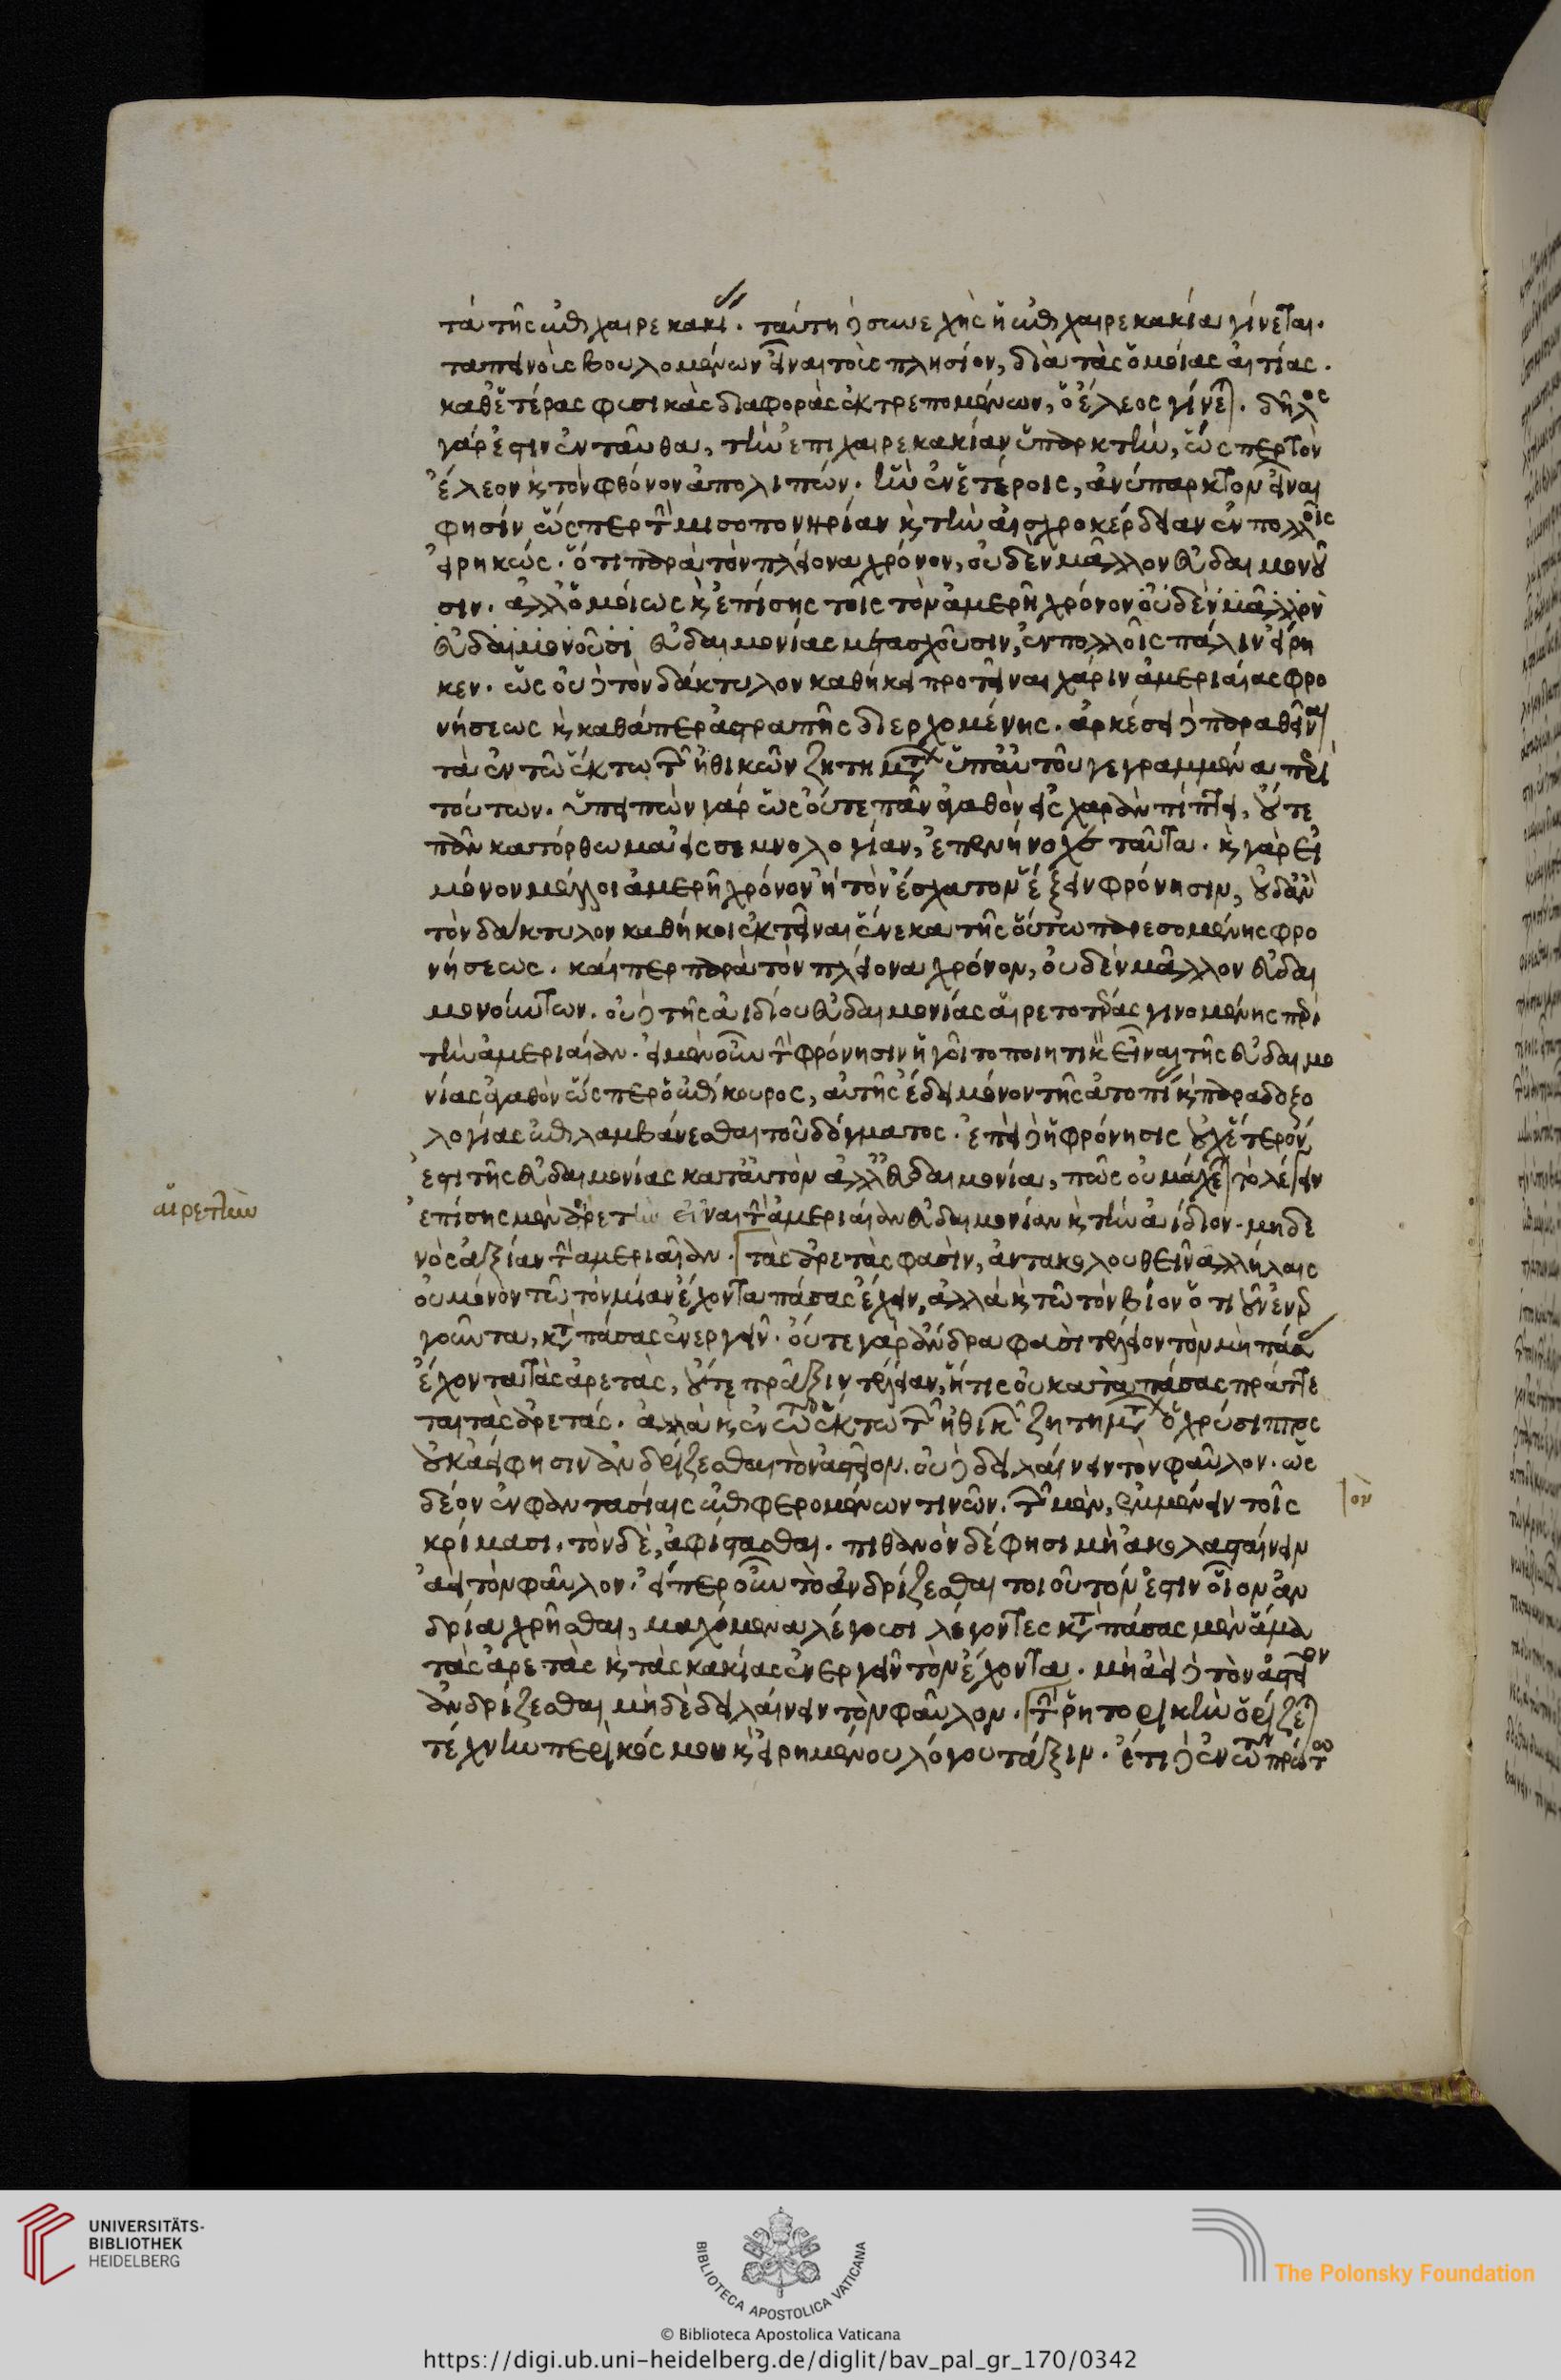 τὰ τῆς ἐπιχαιρεκακίας. ταύτη δὲ συνεχὴς ἡ ἐπιχαιρεκακία γίνεται.
ταπεινοὺς βουλομένων εἶναι τοὺς πλησίον, διὰ τὰς ὁμοίας αἰτίας.
καθ' ἑτέρας φυσικὰς διαφορὰς ἐκτρεπομένων, ὁ ἔλεος γίνεται. δῆλος
γάρ ἐστιν ἐνταῦθα, τὴν ἐπιχαιρεκακίαν ὑπαρκτὴν, ὥσπερ τὸν
ἔλεον καὶ τὸν φθόνον ἀπολιπών. ἣν ἐν ἑτέροις, ἀνύπαρκτον εἶναι
φησίν ὥσπερ τὴν μισοπονηρίαν καὶ τὴν αἰσχροκέρδειαν ἐν πολλοῖς
εἰρηκώς. ὅτι παρὰ τὸν πλείονα χρόνον, οὐδὲν μᾶλλον εὐδαιμονοῦ
σιν. ἀλλ' ὁμοίως καὶ ἐπίσης τοῖς τὸν ἀμερῆ χρόνον οὐδὲν μᾶλλον
εὐδαιμονοῦσι εὐδαιμονίας μετασχοῦσιν, ἐν πολλοῖς πάλιν εἴρη
κεν. ὡς οὐδὲ τὸν δάκτυλον καθήκει προτεῖναι χάριν ἀμεριαίας φρο
νήσεως καὶ καθάπερ ἀστραπῆς διερχομένης. ἀρκέσει δὲ παραθεῖναι
τὰ ἐν τῶ ἕκτω τῶν ἠθικῶν ζητημάτων ὑπ' αὐτοῦ γεγραμμένα περὶ
τούτων. ὑπειπὼν γὰρ ὡς οὔτε πᾶν ἀγαθὸν εἰς χαρὰν πίπτει, οὔτε
πᾶν κατόρθωμα εἰς σεμνολογίαν, ἐπενήνοχε ταῦτα. καὶ γὰρ εἰ
μόνον μέλλοι ἀμερῆ χρόνον ἢ τὸν ἔσχατον ἕξειν φρόνησιν, οὐδ' ἂν
τὸν δάκτυλον καθήκοι ἐκτεῖναι ἕνεκα τῆς οὕτω παρεσομένης φρο
νήσεως. καίπερ παρὰ τὸν πλείονα χρόνον, οὐδὲν μᾶλλον εὐδαι
μονούντων. οὐδὲ τῆς ἀιδίου εὐδαιμονίας αἱρετοτέρας γινομένης παρὰ
τὴν ἀμεριαίαν. εἰ μὲν οὖν τὴν φρόνησιν ἡγεῖτο ποιητικὸν εἶναι τῆς εὐδαιμο
νίας ἀγαθὸν ὥσπερ ὁ ἐπίκουρος, αὐτῆς ἔδει μόνον τῆς ἀτοπίας καὶ παραδοξο
λογίας ἐπιλαμβάνεσθαι τοῦ δόγματος. ἐπεὶ δὲ ἡ φρόνησις οὐχ ἕτερόν
ἐστι τῆς εὐδαιμονίας κατ' αὐτὸν ἀλλ' εὐδαιμονία, πῶς οὐ μάχεται τὸ λέγειν
ἐπίσης μὲν ἀρετὴν εἶναι τὴν ἀμεριαίαν εὐδαιμονίαν καὶ τὴν ἀίδιον. μηδε
νὸς ἀξίαν τὴν ἀμεριαίαν. τὰς ἀρετὰς φασὶν, ἀντακολουθεῖν ἀλλήλαις
οὐ μόνον τῶ τὸν μίαν ἔχοντα πάσας ἔχειν, ἀλλὰ καὶ τῶ τὸν βίον ὁτιοῦν ἐνερ
γοῦντα, κατὰ πάσας ἐνεργεῖν. οὔτε γὰρ ἄνδρα φασὶ τέλειον τὸν μὴ πάσας
ἔχοντα τὰς ἀρετὰς, οὔτε πρᾶξιν τελείαν, ἥτις οὐ κατὰ πάσας πράττε
ται τὰς ἀρετάς. ἀλλὰ καὶ ἐν τῶ ἕκτω τῶν ἠθικῶν ζητημάτων ὁ χρύσιππος
οὐκ ἀεὶ φησὶν ἀνδρίζεσθαι τὸν ἀστεῖον. οὐδὲ δειλαίνειν τὸν φαῦλον. ὡς
δέον ἐν φαντασίαις ἐπιφερομένων τινῶν. τῶν μὲν, ἐμμένειν τοῖς
κρίμασι. τὸν δὲ, ἀφίστασθαι. πιθανὸν δέ φησι μὴ ἀκολασταίνειν
ἀεὶ τὸν φαῦλον. εἴπερ οὖν τὸ ἀνδρίζεσθαι τοιοῦτόν ἐστιν οἷον ἀν
δρία χρῆσθαι, μαχόμενα λέγουσι λέγοντες κατὰ πάσας μὲν ἅμα
τὰς ἀρετὰς καὶ τὰς κακίας ἐνεργεῖν τὸν ἔχοντα. μὴ ἀεὶ δὲ τὸν ἀστεῖον
ἀνδρίζεσθαι μηδὲ δειλαίνειν τὸν φαῦλον. τὴν ῥητορικὴν ὁρίζεται
τέχνην περὶ κόσμον καὶ εἰρημένου λόγου τάξιν. ἔτι δὲ ἐν τῶ πρώτω
αἱρετὴν
ον
UNIVERSITÄTS-
BIBLIOTHEK
HEIDELBERG
BIBLIOTECA APOSTOLICA VATICANA
© Biblioteca Apostolica Vaticana
The Polonsky Foundation
https://digi.ub.uni-heidelberg.de/diglit/bav_pal_gr_170/0342